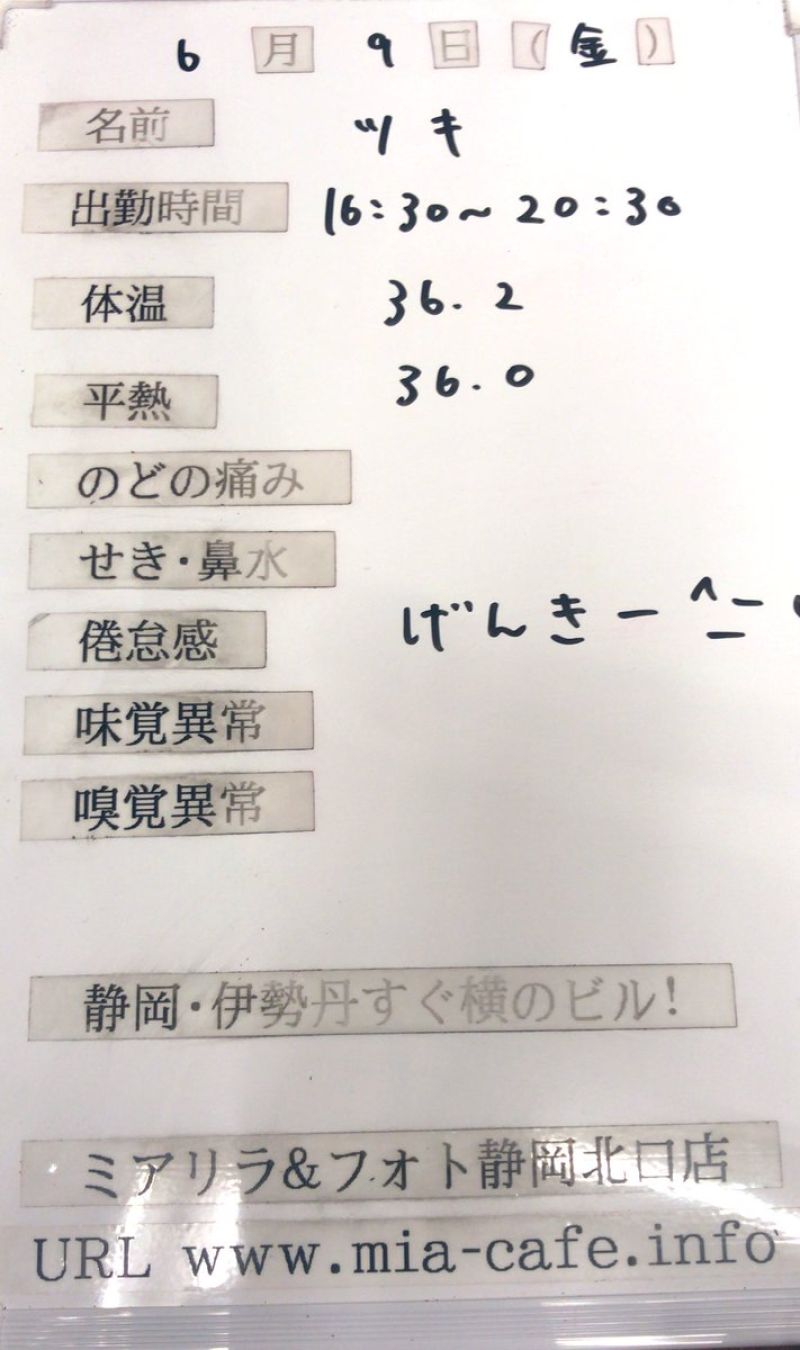 6月9日(金)
名前 ツキ
出勤時間 16:30~20:30
体温 36.2
平熱 36.0
のどの痛み
せき・鼻水
倦怠感 げんきー^ー
味覚異常
嗅覚異常
静岡・伊勢丹すぐ横のビル!
ミアリラ&フォト静岡北口店
URL www.mia-cafe.info